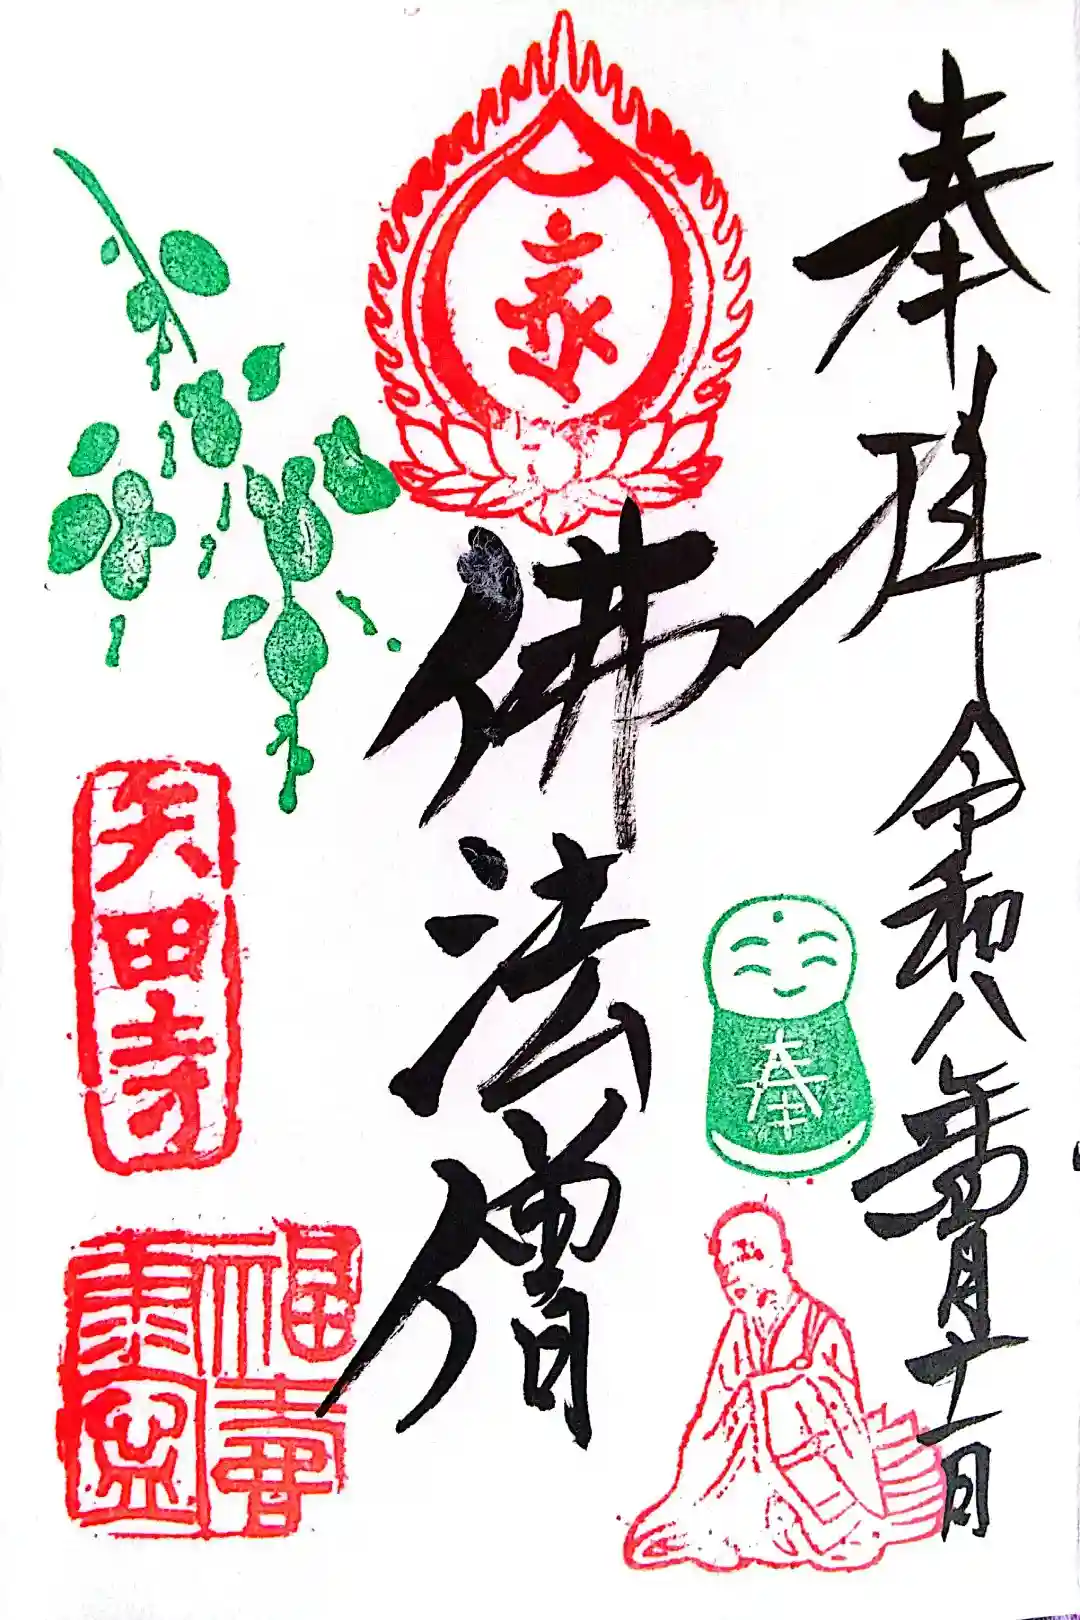 奉拝
令和八年四月十一日
佛法僧
奉
矢田寺
福壽